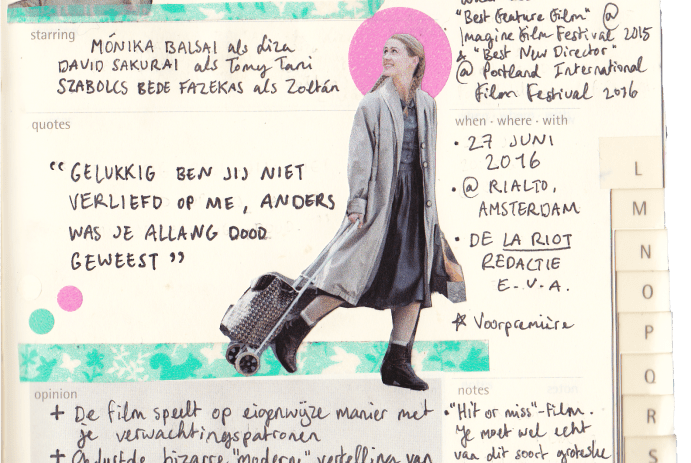 starring
MÓNIKA BALSAI als Liza
DAVID SAKURAI als Tomy Tani
SZABOLCS BEDE FAZEKAS als Zoltán
"Best Feature Film" @
Imagine Film Festival 2015
& "Best New Director"
@ Portland International
Film Festival 2016
quotes
"GELUKKIG BEN JIJ NIET
VERLIEFD OP ME, ANDERS
WAS JE ALLANG DOOD
GEWEEST"
when · where · with
• 27 JUNI
2016
• @ RIALTO,
AMSTERDAM
• DE LA RIOT
REDACTIE
E.V.A.
* Voorpremière
L
M
N
O
P
Q
R
S
opinion
+ De film speelt op eigenwijze manier met
je verwachtingspatronen
bizarre "moderne" vertelling van
notes
• "Hit or miss"-film.
Je moet wel echt
van dit soort groteske